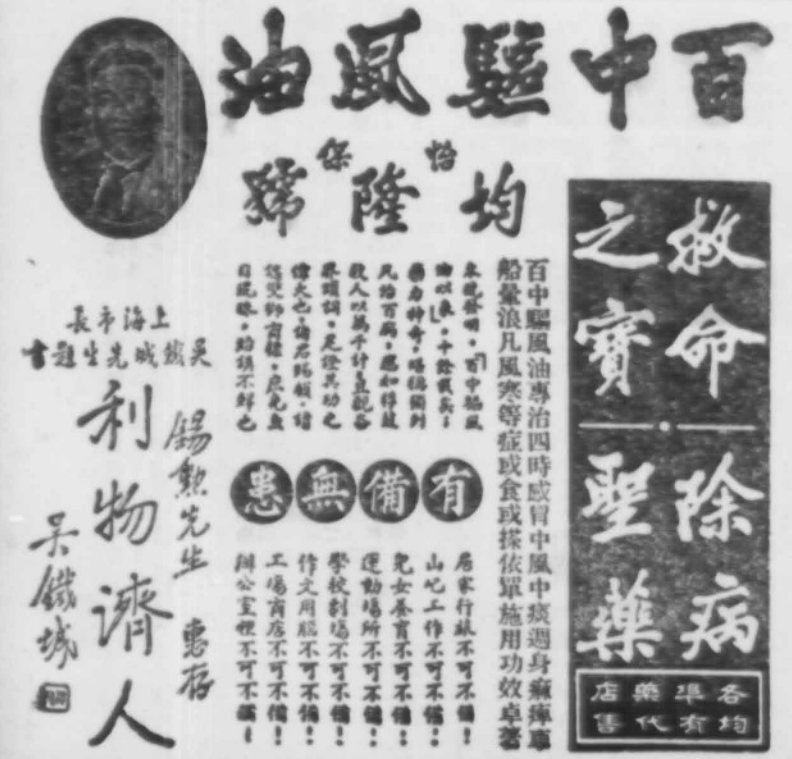 百中驅風油
怡保
均隆號
救命之寶
除病聖藥
各埠藥店
均有代售
百中驅風油專治四時感冒中風中痰週身痲痺車
船暈浪凡風寒等症或食或搽依單施用功效卓著
本號發明,「百中驅風
油」以來,十餘載矣;
藥力神奇,獨到
凡治百病,應如
救人以萬千計,且觀各
界頌詞,足證其功之
偉大也,諸君賜顧,請
認雙獅商標,庶免魚
目混珠,貽誤不鮮也
有備無患
居家行旅不可不備!
山芭工作不可不備!
兒女養育不可不備!
運動場所不可不備!
學校劇場不可不備!
作文用腦不可不備!
工場商店不可不備!
辦公室裡不可不備!
上海市長
吳鐵城先生題書
錫勳先生 惠存
利物濟人
吳鐵城